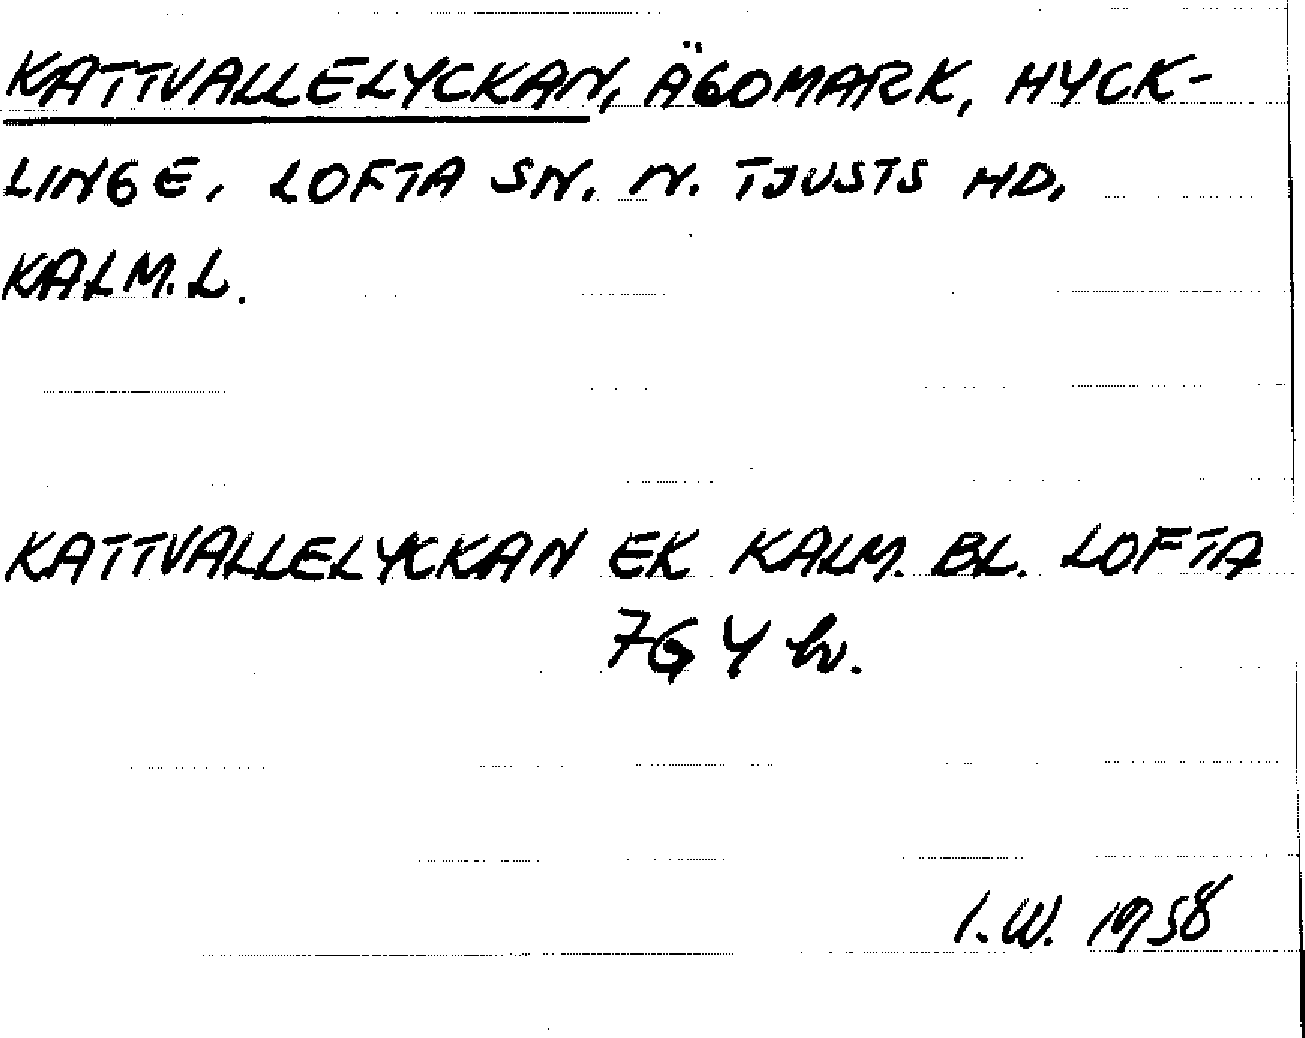 KATTVALLELYCKAN, ÄGOMARK, HYCK-
LINGE, LOFTA SN. N. TJUSTS HD,
KALM.L.
KATTVALLELYCKAN EK KALM. BL. LOFTA
7G Y hv.
I.W. 1958